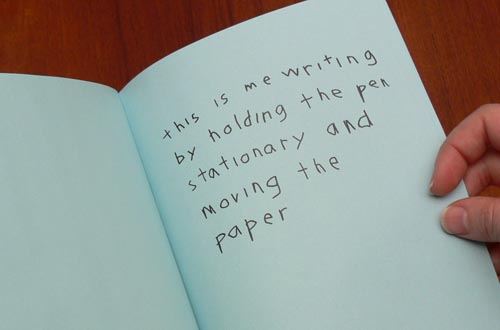 this is me writing
by holding the pen
stationary and
moving the
paper